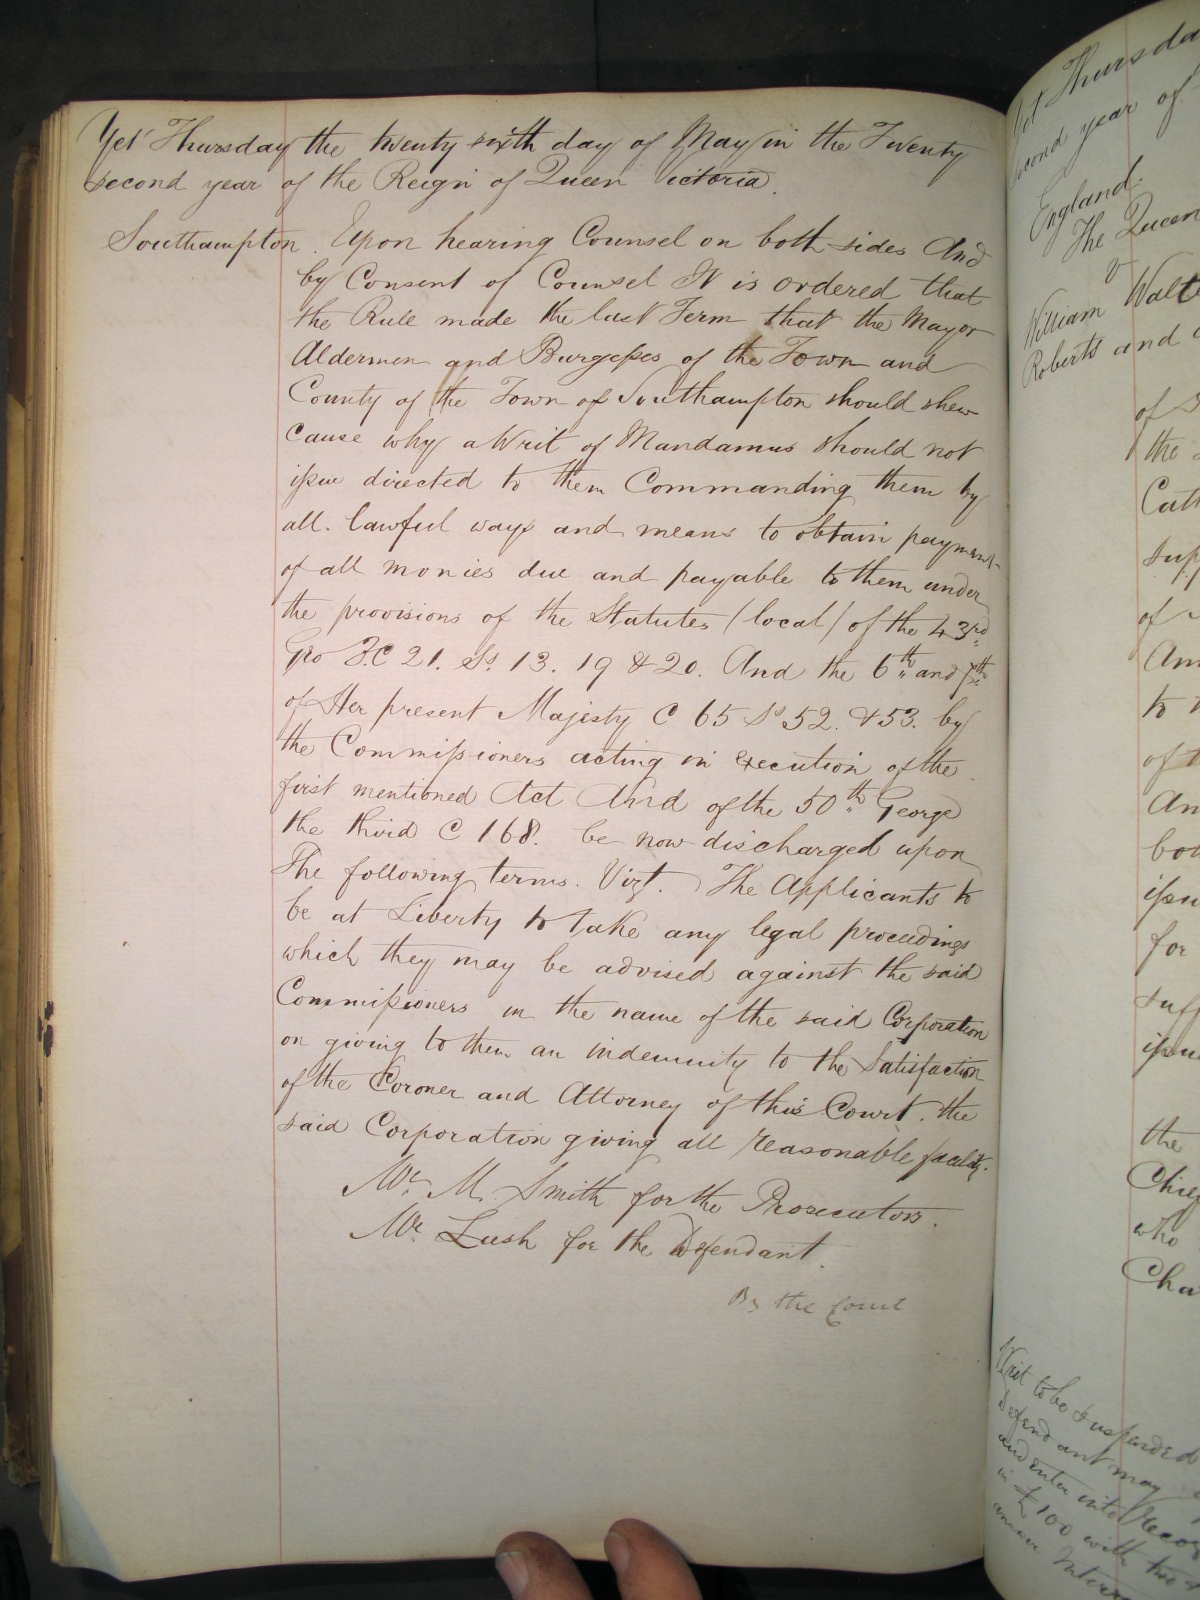 Yet Thursday the twenty sixth day of May in the Twenty
second year of the Reign of Queen Victoria.
Southampton. Upon hearing Counsel on both sides And
by Consent of Counsel It is ordered that
the Rule made the last Term that the Mayor
Aldermen and Burgesses of the Town and
County of the Town of Southampton should shew
cause why a Writ of Mandamus should not
issue directed to them Commanding them by
all lawful ways and means to obtain payment
of all monies due and payable to them under
the provisions of the Statutes (local) of the 43rd
Geo 3. C 21. Ss. 13. 19 & 20. And the 6th and 7th
of Her present Majesty C 65 Ss 52. & 53. by
the Commissioners acting in execution of the
first mentioned Act And of the 50th George
the third C 168. be now discharged upon
The following terms. Vizt. The Applicants to
be at Liberty to take any legal proceedings
which they may be advised against the said
Commissioners in the name of the said Corporation
on giving to them an indemnity to the Satisfaction
of the Coroner and Attorney of this Court. the
said Corporation giving all reasonable facility.
Mr. M. Smith for the Prosecutors.
Mr. Lush for the Defendant.
By the Court
Yet Thursda
second year of
England.
The Queen
v
William Walt
Roberts and
of
the
Cath
sup
of
An
to
of t
An
bou
issu
for
suff
issu
the
Chief
who
Cha
Writ to be suspended
Defendant may
and enter into Recog
in £100 with two
answer Interr